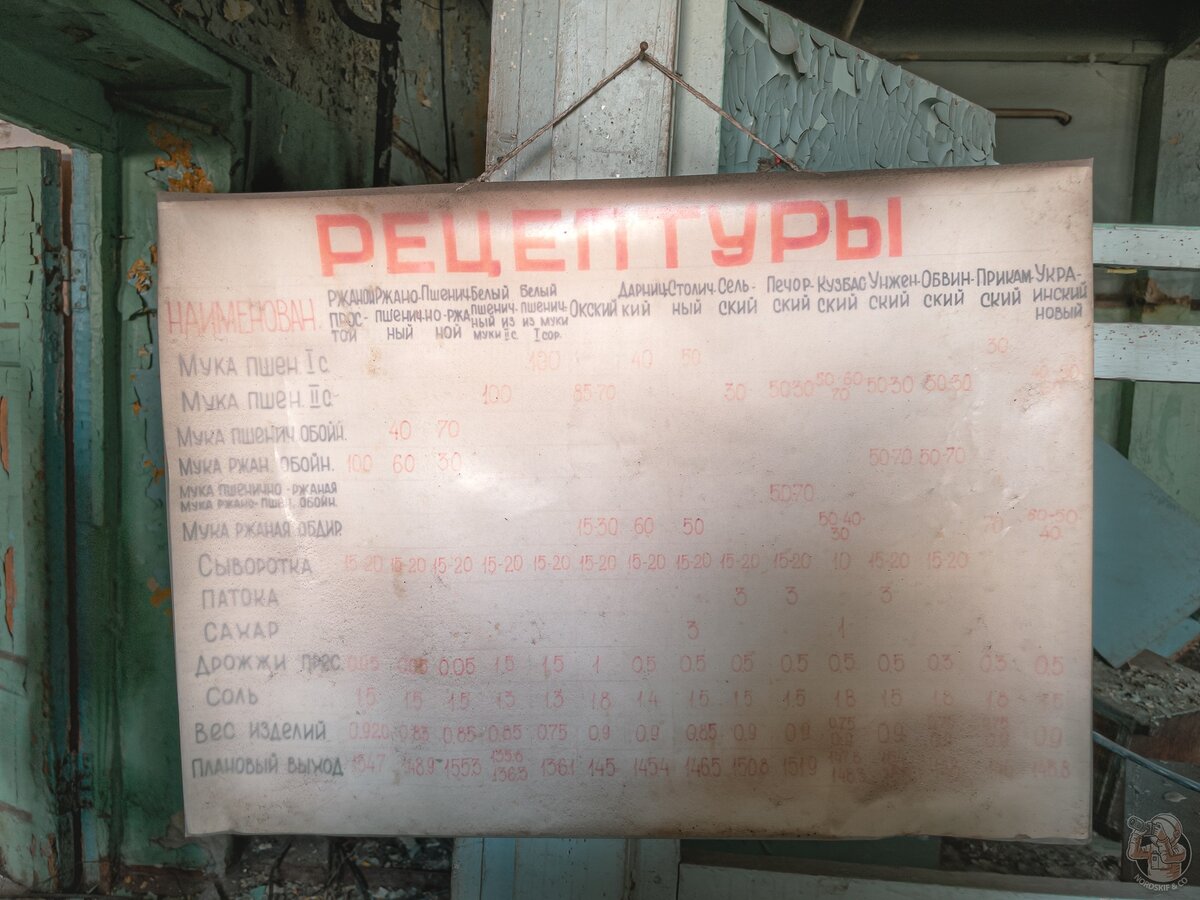 РЕЦЕПТУРЫ
НАИМЕНОВАН. РЖАНОЙ ПРОСТОЙ РЖАНО-ПШЕНИЧНЫЙ ПШЕНИЧНО-РЖАНОЙ БЕЛЫЙ ПШЕНИЧНЫЙ ИЗ МУКИ IIС. БЕЛЫЙ ПШЕНИЧ. ИЗ МУКИ IСОР. ОКСКИЙ ДАРНИЦКИЙ СТОЛИЧНЫЙ СЕЛЬСКИЙ ПЕЧОРСКИЙ КУЗБАССКИЙ УНЖЕНСКИЙ ОБВИНСКИЙ ПРИКАМСКИЙ УКРАИНСКИЙ НОВЫЙ
МУКА ПШЕН. IС 100 40 50 30
МУКА ПШЕН. IIС 100 85-70 30 50-30 50-60 70 50-30 50-30
МУКА ПШЕНИЧ. ОБОЙН. 40 70
МУКА РЖАН. ОБОЙН. 100 60 30 50-70 50-70
МУКА ПШЕНИЧНО-РЖАНАЯ
МУКА РЖАНО-ПШЕН. ОБОЙН. 50-70
МУКА РЖАНАЯ ОБДИР. 15-30 60 50 50-40-30 70 60-50-40
СЫВОРОТКА 15-20 15-20 15-20 15-20 15-20 15-20 15-20 15-20 15-20 15-20 10 15-20 15-20
ПАТОКА 3 3 3
САХАР 3 1
ДРОЖЖИ ПРЕС. 0.05 0.05 0.05 1,5 1,5 1 0,5 0.5 0.5 0.5 0.5 0.5 0.3 0.3 0.5
СОЛЬ 1.5 1.5 1.5 1.3 1.3 1.8 1.4 1.5 1.5 1.5 1.8 1.5 1.8 1.8
ВЕС ИЗДЕЛИЙ 0.920 0.83 0.85 0.85 0.75 0.9 0.9 0.85 0.9 0.9 0.75 0.9 0.75 0.75 0.9
ПЛАНОВЫЙ ВЫХОД 148.9 155.3 135.8 136.3 136.1 145 145.4 146.5 150.8 151.9
NORDSKIF & CO